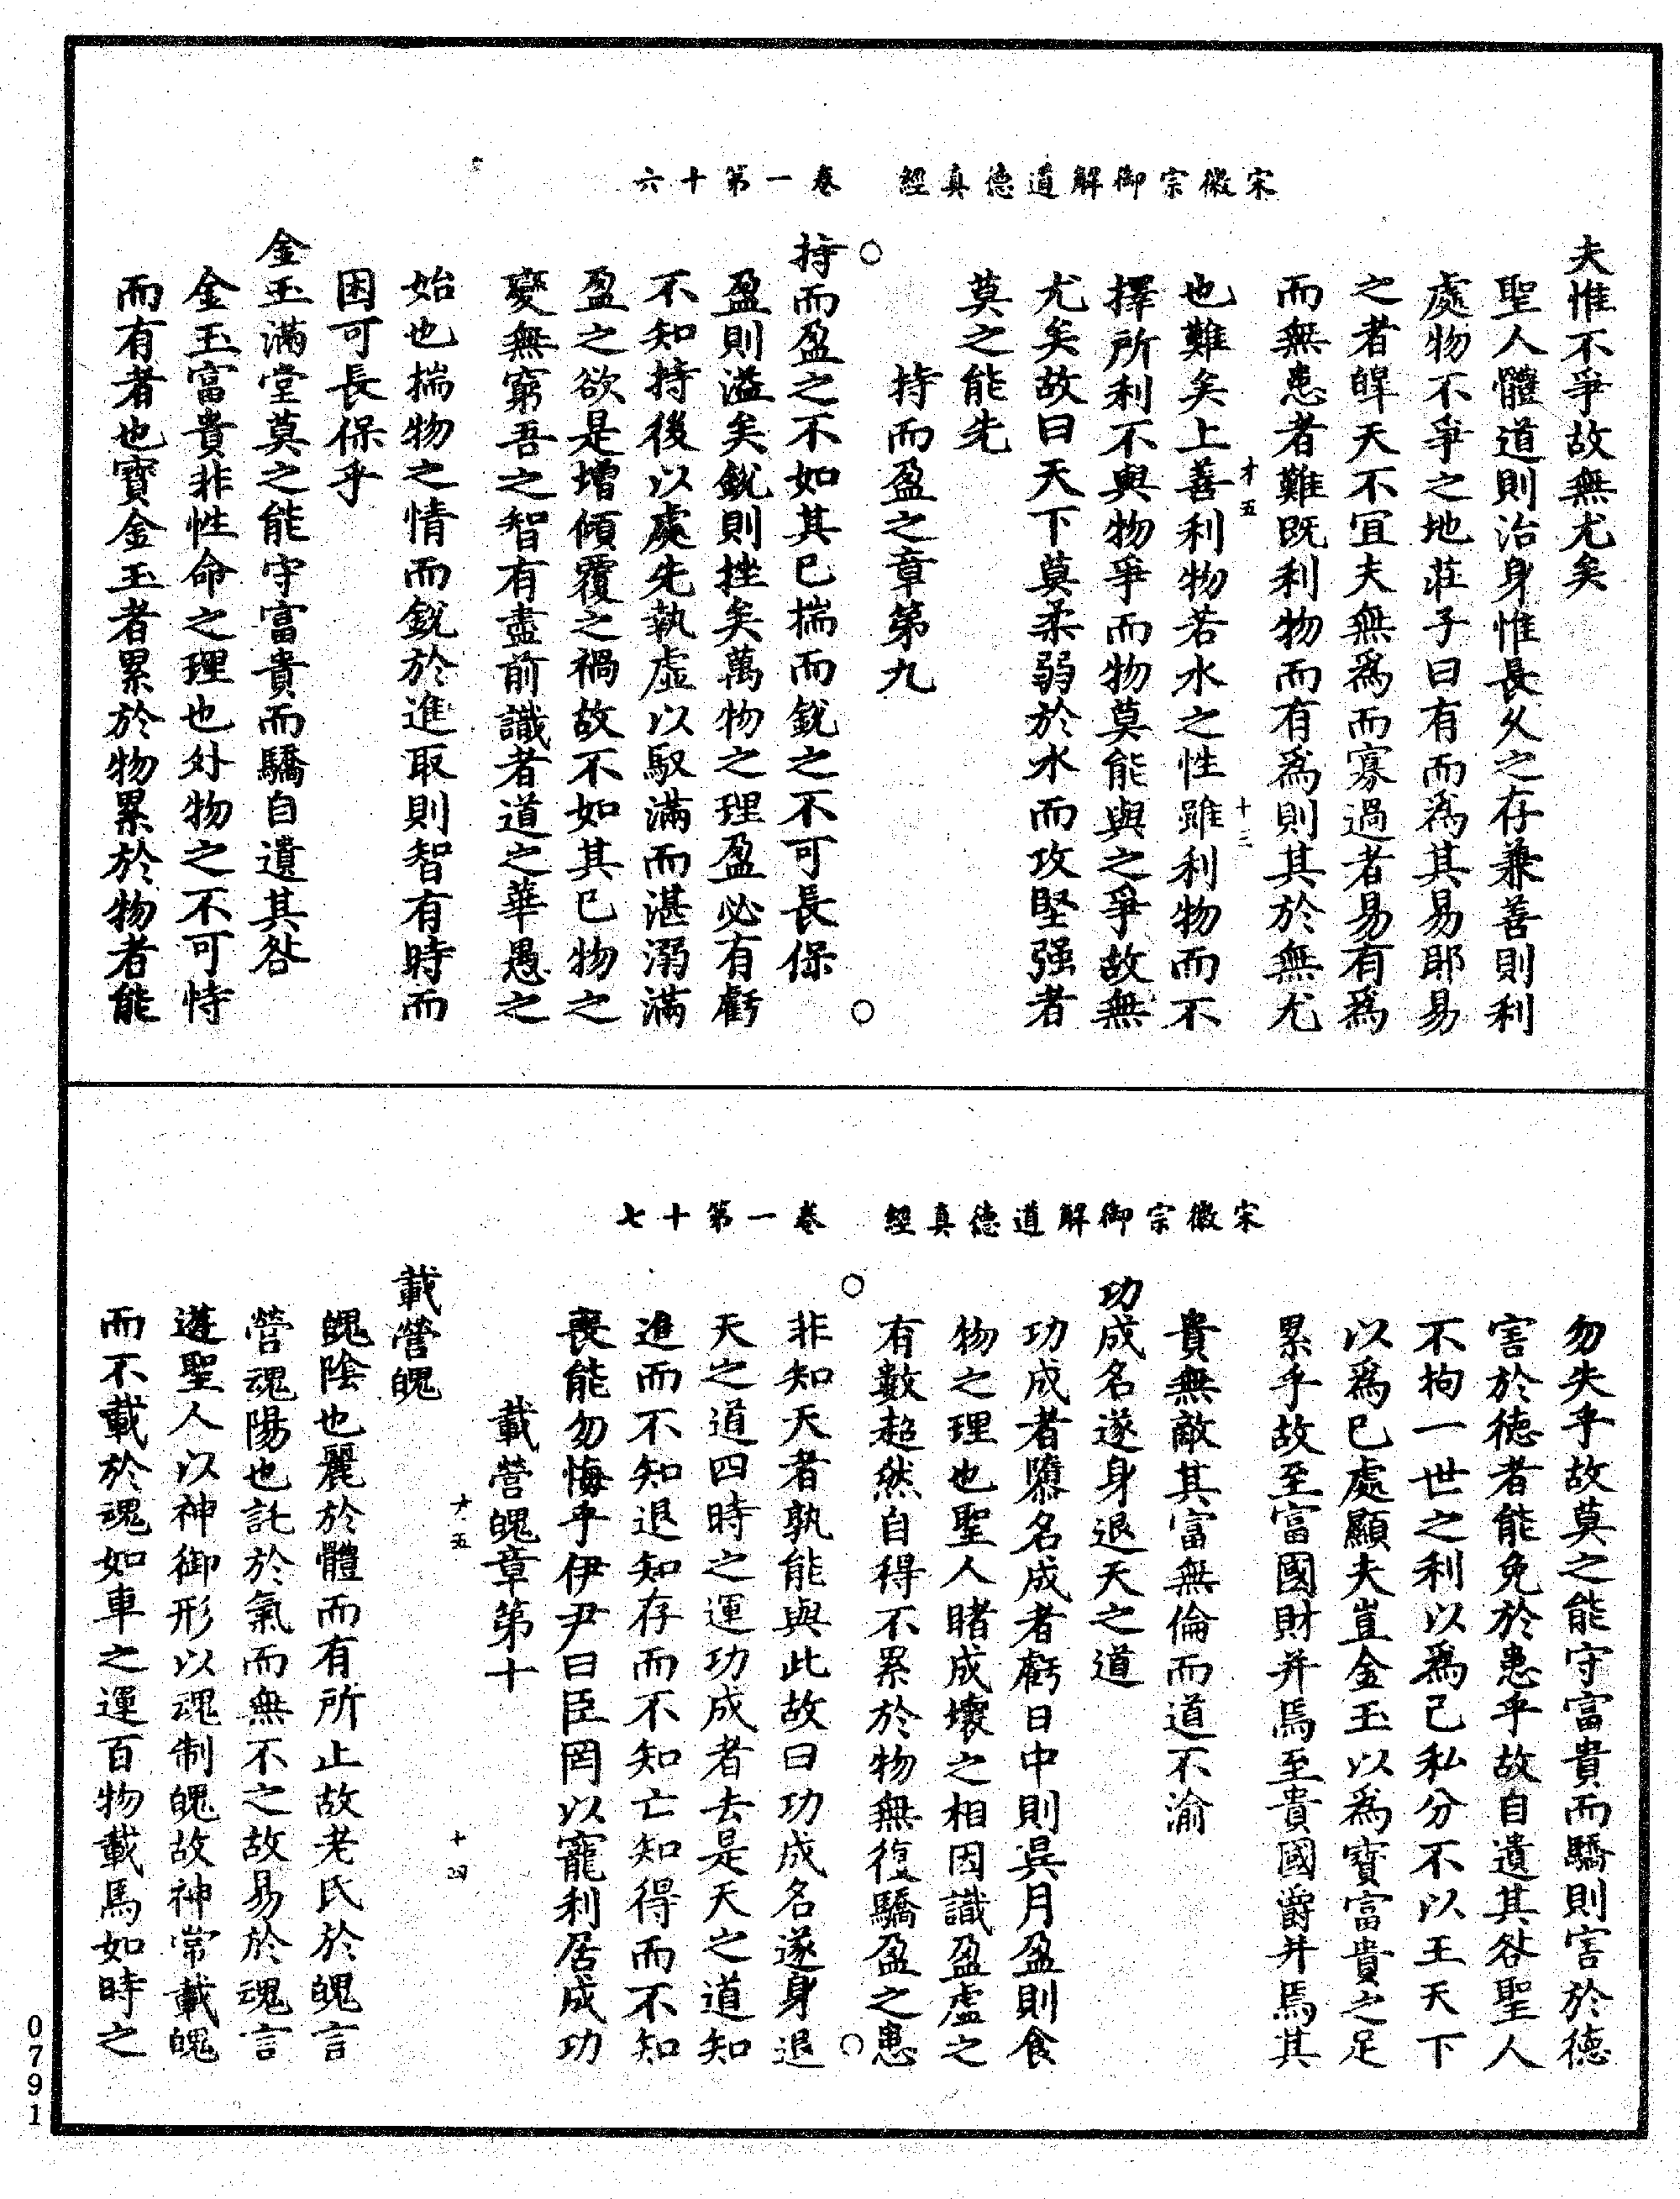 宋徽宗御解道德真經　卷一第十六
夫惟不爭故無尤矣
聖人體道則治身惟長久之存兼善則利
處物不爭之地莊子曰有而爲其易耶易
之者皥天不宜夫無爲而寡過者易有爲
而無患者難既利物而有爲則其於無尤
才五　十三
也難矣上善利物若水之性雖利物而不
擇所利不與物爭而物莫能與之爭故無
尤矣故曰天下莫柔弱於水而攻堅强者
莫之能先
持而盈之章第九
持而盈之不如其已揣而銳之不可長保
盈則溢矣銳則挫矣萬物之理盈必有虧
不知持後以處先執虛以馭滿而湛溺滿
盈之欲是增傾覆之禍故不如其已物之
變無窮吾之智有盡前識者道之華愚之
始也揣物之情而銳於進取則智有時而
困可長保乎
金玉滿堂莫之能守富貴而驕自遺其咎
金玉富貴非性命之理也外物之不可恃
而有者也寳金玉者累於物累於物者能
宋徽宗御解道德真經　卷一第十七
勿失乎故莫之能守富貴而驕則害於德
害於德者能免於患乎故自遺其咎聖人
不拘一世之利以爲己私分不以王天下
以爲已處顯夫豈金玉以爲寳富貴之足
累乎故至富國財并焉至貴國爵并焉其
貴無敵其富無倫而道不渝
功成名遂身退天之道
功成者隳名成者虧日中則昃月盈則食
物之理也聖人睹成壞之相因識盈虛之
有數超然自得不累於物無復驕盈之患
非知天者孰能與此故曰功成名遂身退
天之道四時之運功成者去是天之道知
進而不知退知存而不知亡知得而不知
喪能勿悔乎伊尹曰臣罔以寵利居成功
載營魄章第十
才五　十四
載營魄
魄陰也麗於體而有所止故老氏於魄言
營魂陽也託於氣而無不之故易於魂言
遊聖人以神御形以魂制魄故神常載魄
而不載於魂如車之運百物載焉如時之
0791